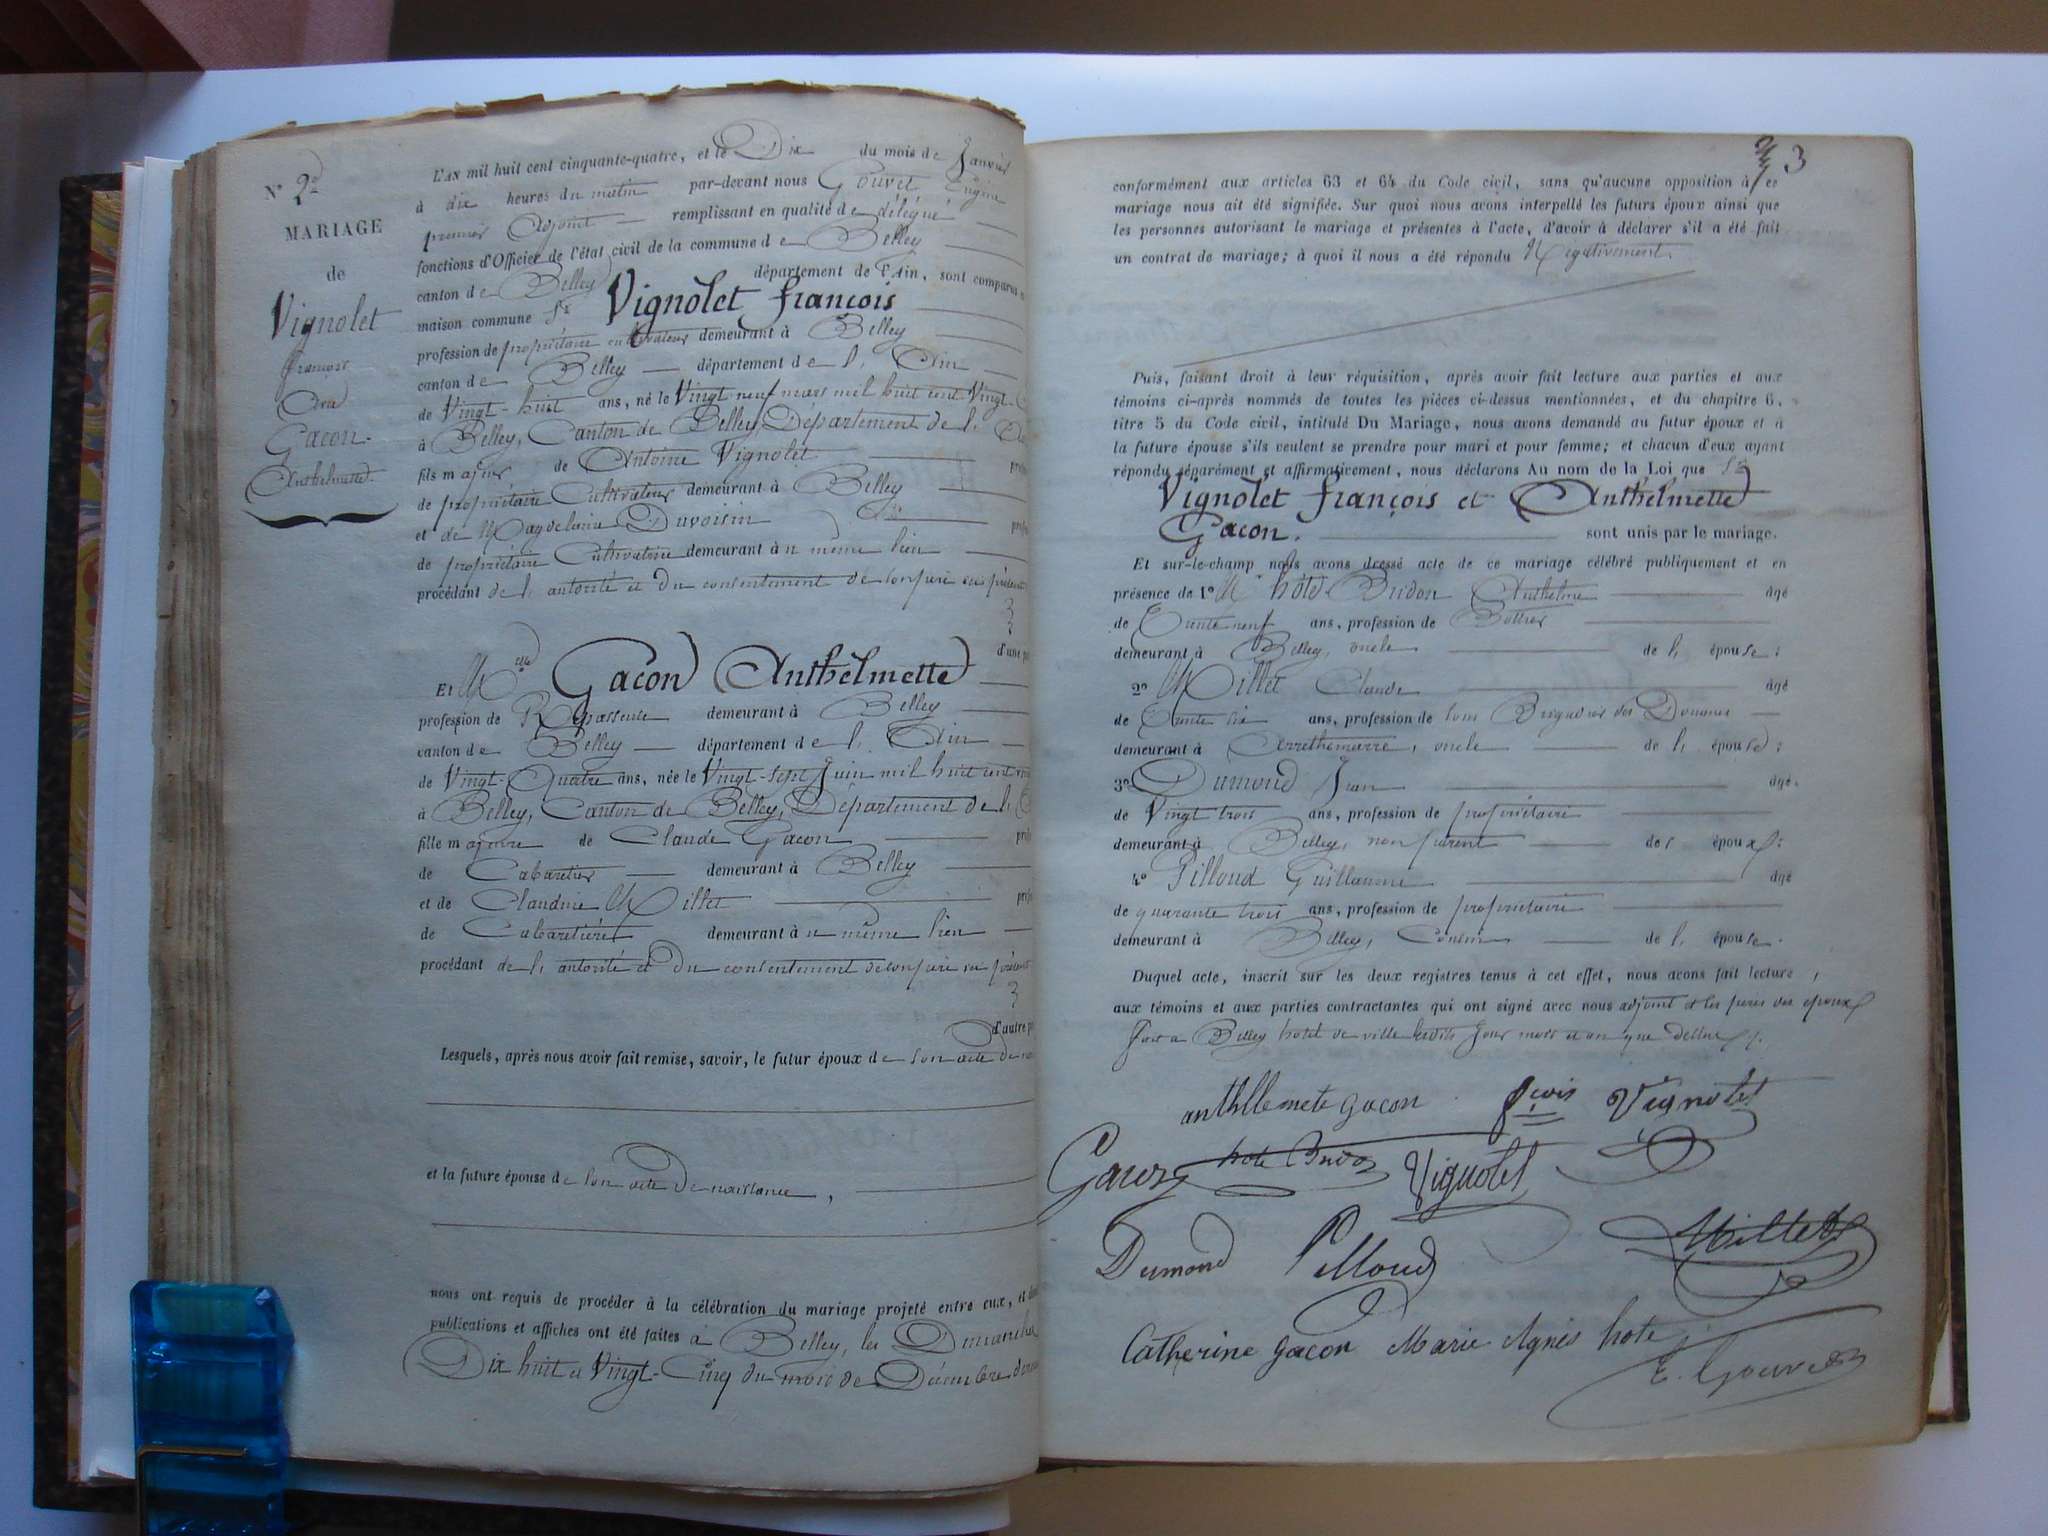 N° 2
MARIAGE
de
Vignolet
françois
Et
Gacon
Anthelmette
L'AN mil huit cent cinquante-quatre, et le Dix du mois de Janvier
à dix heures du matin par-devant nous Gouvet Eugène
premier Adjoint remplissant en qualité de délégué
fonctions d'Officier de l'état civil de la commune de Belley
canton de Belley département de l'Ain, sont comparus
maison commune Sr Vignolet françois
profession de propriétaire cultivateur demeurant à Belley
canton de Belley département de l'Ain
de Vingt-huit ans, né le Vingt neuf mars mil huit cent Vingt-
à Belley, Canton de Belley, Département de l'
fils majeur de Antoine Vignolet
de propriétaire Cultivateur demeurant à Belley
et de Magdelaine Duvoisin
de propriétaire Cultivatrice demeurant au même lieu
procédant de l'autorité et du consentement de son père ici présent
d'une
Et Mlle Gacon Anthelmette
profession de Repasseuse demeurant à Belley
canton de Belley département de l'Ain
de Vingt-Quatre ans, née le Vingt-sept Juin mil huit cent
à Belley, Canton de Belley, Département de l'
fille majeure de Claude Gacon
de Cabaretier demeurant à Belley
et de Claudine Millet
de Cabaretière demeurant au même lieu
procédant de l'autorité et du consentement de son père ici présent
d'autre
Lesquels, après nous avoir fait remise, savoir, le futur époux de son acte de
et la future épouse de son acte de naissance,
nous ont requis de procéder à la célébration du mariage projeté entre eux, et
publications et affiches ont été faites à Belley, les Dimanches
Dix huit et Vingt-Cinq du mois de Décembre
3
conformément aux articles 63 et 64 du Code civil, sans qu'aucune opposition à ce
mariage nous ait été signifiée. Sur quoi nous avons interpellé les futurs époux ainsi que
les personnes autorisant le mariage et présentes à l'acte, d'avoir à déclarer s'il a été fait
un contrat de mariage; à quoi il nous a été répondu Négativement
Puis, faisant droit à leur réquisition, après avoir fait lecture aux parties et aux
témoins ci-après nommés de toutes les pièces ci-dessus mentionnées, et du chapitre 6,
titre 5 du Code civil, intitulé Du Mariage, nous avons demandé au futur époux et à
la future épouse s'ils veulent se prendre pour mari et pour femme; et chacun d'eux ayant
répondu séparément et affirmativement, nous déclarons Au nom de la Loi que Sr
Vignolet françois et Anthelmette
Gacon. sont unis par le mariage.
Et sur-le-champ nous avons dressé acte de ce mariage célébré publiquement et en
présence de 1° hôte Bridon Anthelme âgé
de Trente neuf ans, profession de Bottier
demeurant à Belley, oncle de l'épouse;
2° Millet Claude âgé
de Trente six ans, profession de sous Brigadier des Douanes
demeurant à oncle de l'épouse;
3° Dumond Jean âgé
de Vingt trois ans, profession de propriétaire
demeurant à Belley, non parent des époux;
4° Pilloud Guillaume âgé
de quarante trois ans, profession de propriétaire
demeurant à Belley, Cousin de l'épouse.
Duquel acte, inscrit sur les deux registres tenus à cet effet, nous avons fait lecture,
aux témoins et aux parties contractantes qui ont signé avec nous adjoint et les pères des époux
fait à Belley hotel de ville lesdits jour mois et an que dessus
anthllemete gacon fcois Vignolet
Gacon hote Vignolet
Dumond Pilloud Millet
Catherine gacon Marie Agnès hote
E. Gouvet